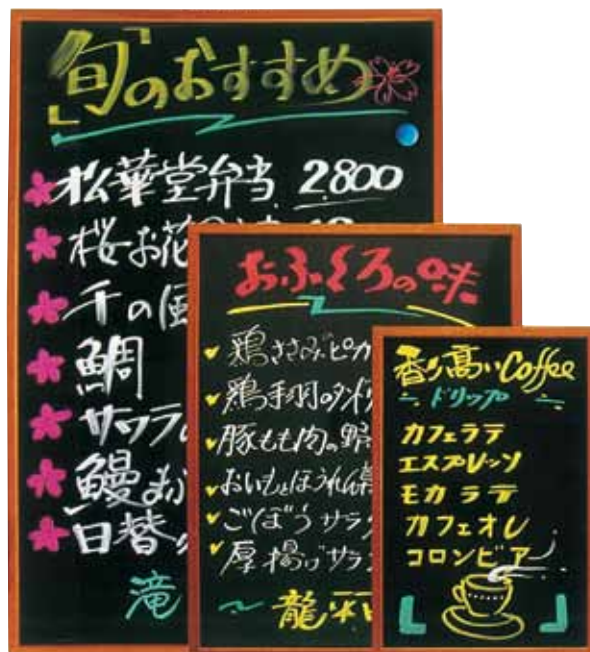 「旬のおすすめ」
松華堂弁当 2800
桜お花
千の風
鯛
サワラ
鰻ま
日替
滝
おふくろの味
鶏ささみピカ
鶏手羽のタンドリ
豚もも肉の野
おいもとほうれん草
ごぼうサラダ
厚揚げサラ
龍
香り高いCoffee
ドリップ
カフェラテ
エスプレッソ
モカラテ
カフェオレ
コロンビア